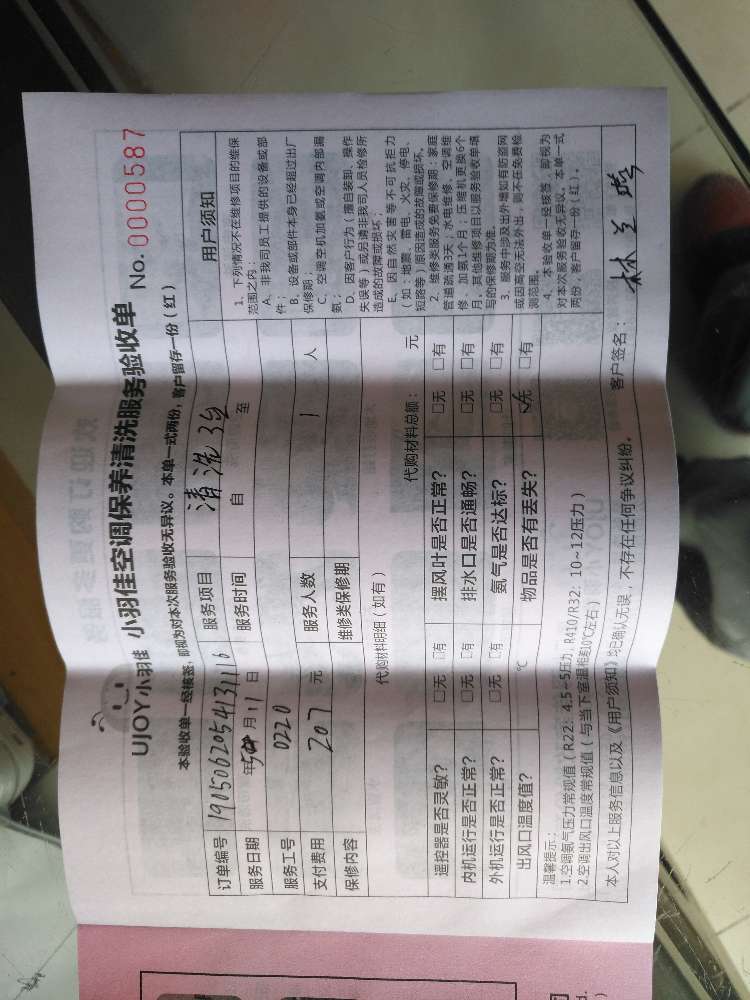 UJOY小羽佳 小羽佳空调保养清洗服务验收单 No. 0000587
本验收单一经核签，即视为对本次服务验收无异议。本单一式两份，客户留存一份（红）
订单编号 1905062054131116 服务项目 清洗3台
服务日期 年5月11日 服务时间 自 至
服务工号 0220
支付费用 207 元 服务人数 1 人
保修内容 维修类保修期
代购材料明细（如有） 代购材料总额： 元
遥控器是否灵敏？ □无 □有 摆风叶是否正常？ □无 □有
内机运行是否正常？ □无 □有 排水口是否通畅？ □无 □有
外机运行是否正常？ □无 □有 氨气是否达标？ □无 □有
出风口温度值？ ℃ 物品是否有丢失？ ☑无 □有
温馨提示：
1.空调氨气压力常规值（R22：4.5~5压力，R410/R32：10~12压力）
2.空调出风口温度常规值（与当下室温相差10℃左右）
本人对以上服务信息以及《用户须知》均已确认无误，不存在任何争议纠纷。 客户签名：
用户须知
1、下列情况不在维修项目的维保
范围之内：
A、非我司员工提供的设备或部
件；
B、设备或部件本身已经超过出厂
保修期；
C、空调空机加氨或空调内部漏
氨；
D、因客户行为（擅自装卸、操作
失误等）或另请非我司人员检修所
造成的故障或损坏；
E、因自然灾害等不可抗拒力
（如：地震、雷电、火灾、停电、
短路等）原因造成的故障或损坏。
2、维修类服务免费保修期：家庭
管道疏通3天；水电维修、空调维
修、加氨1个月；压缩机更换6个
月。其他维修项目以服务验收单填
写的保修期为准。
3、服务中涉及出外墙如有防盗网
或因高空无法外出，则不在免费检
测范围。
4、本验收单一经核签，即视为
对本次服务验收无异议。本单一式
两份，客户留存一份（红）。